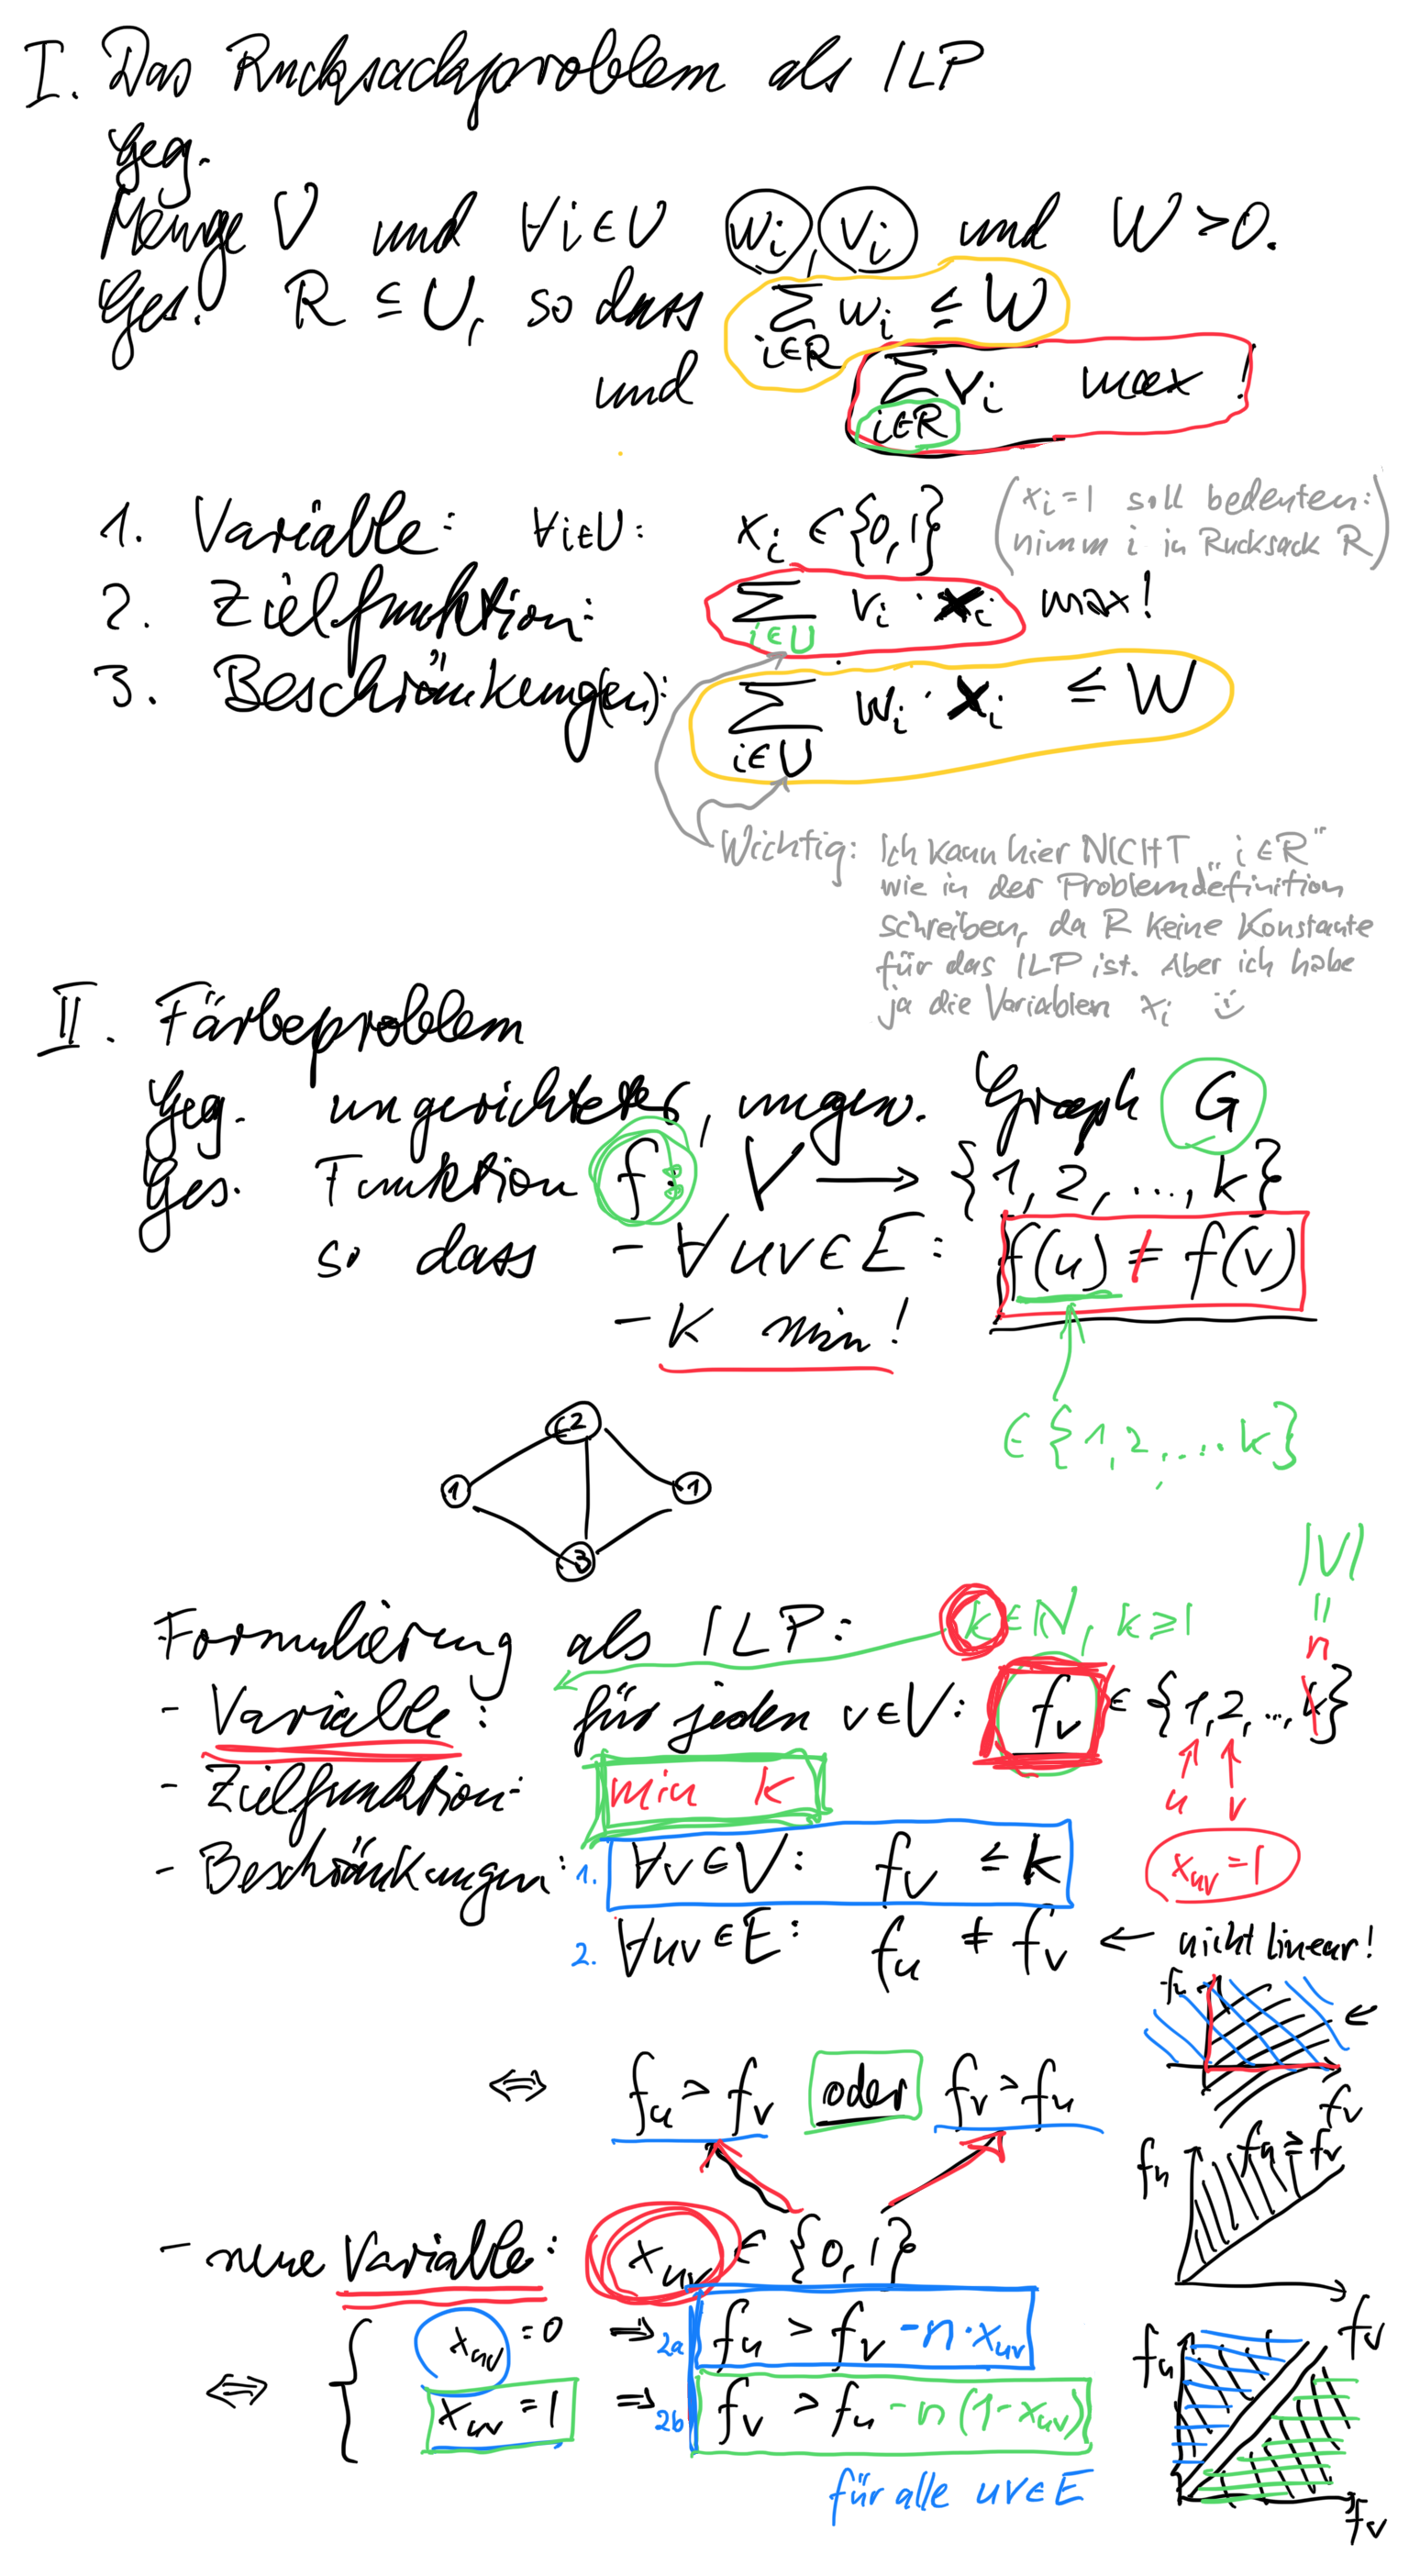 I. Das Rucksackproblem als ILP
Geg.
Menge U und ∀i∈U wi, vi und W>0.
Ges. R ⊆ U, so dass ∑ i∈R wi ≤ W
und ∑ i∈R vi max!
1. Variable: ∀i∈U: xi ∈ {0,1} (xi=1 soll bedeuten:
nimm i in Rucksack R)
2. Zielfunktion: ∑ i∈U vi · xi max!
3. Beschränkung(en): ∑ i∈U wi · xi ≤ W
Wichtig: Ich kann hier NICHT „i∈R“
wie in der Problemdefinition
schreiben, da R keine Konstante
für das ILP ist. Aber ich habe
ja die Variablen xi ☺
II. Färbeproblem
Geg. ungerichteter, ungew. Graph G
Ges. Funktion f: V → {1,2,...,k}
so dass - ∀uv∈E: f(u) ≠ f(v)
- k min!
∈ {1,2,...k}
2
1 1
3
|V|
=
n
Formulierung als ILP: k∈ℕ, k≥1
- Variable: für jeden v∈V: fv ∈ {1,2,...,k}
u v
- Zielfunktion: min k
- Beschränkungen: 1. ∀v∈V: fv ≤ k
xuv=1
2. ∀uv∈E: fu ≠ fv ← nicht linear!
fu
fv
⇔ fu > fv oder fv > fu
fu fu ≥ fv
fv
- neue Variable: xuv ∈ {0,1}
⇔ { xuv = 0 ⇒ 2a fu > fv - n·xuv
xuv = 1 ⇒ 2b fv > fu - n(1-xuv)
für alle uv∈E
fu
fv